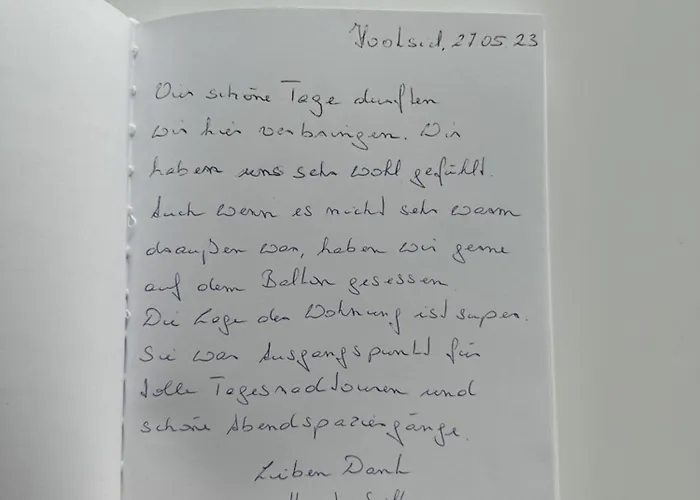 21.05.23
Vier schöne Tage durften
wir hier verbringen. Wir
haben uns sehr wohl gefühlt.
Auch wenn es nicht sehr warm
draußen war, haben wir gerne
auf dem Balkon gesessen.
Die Lage der Wohnung ist super.
Sie war Ausgangspunkt für
tolle Tagesradtouren und
schöne Abendspaziergänge.
Lieben Dank